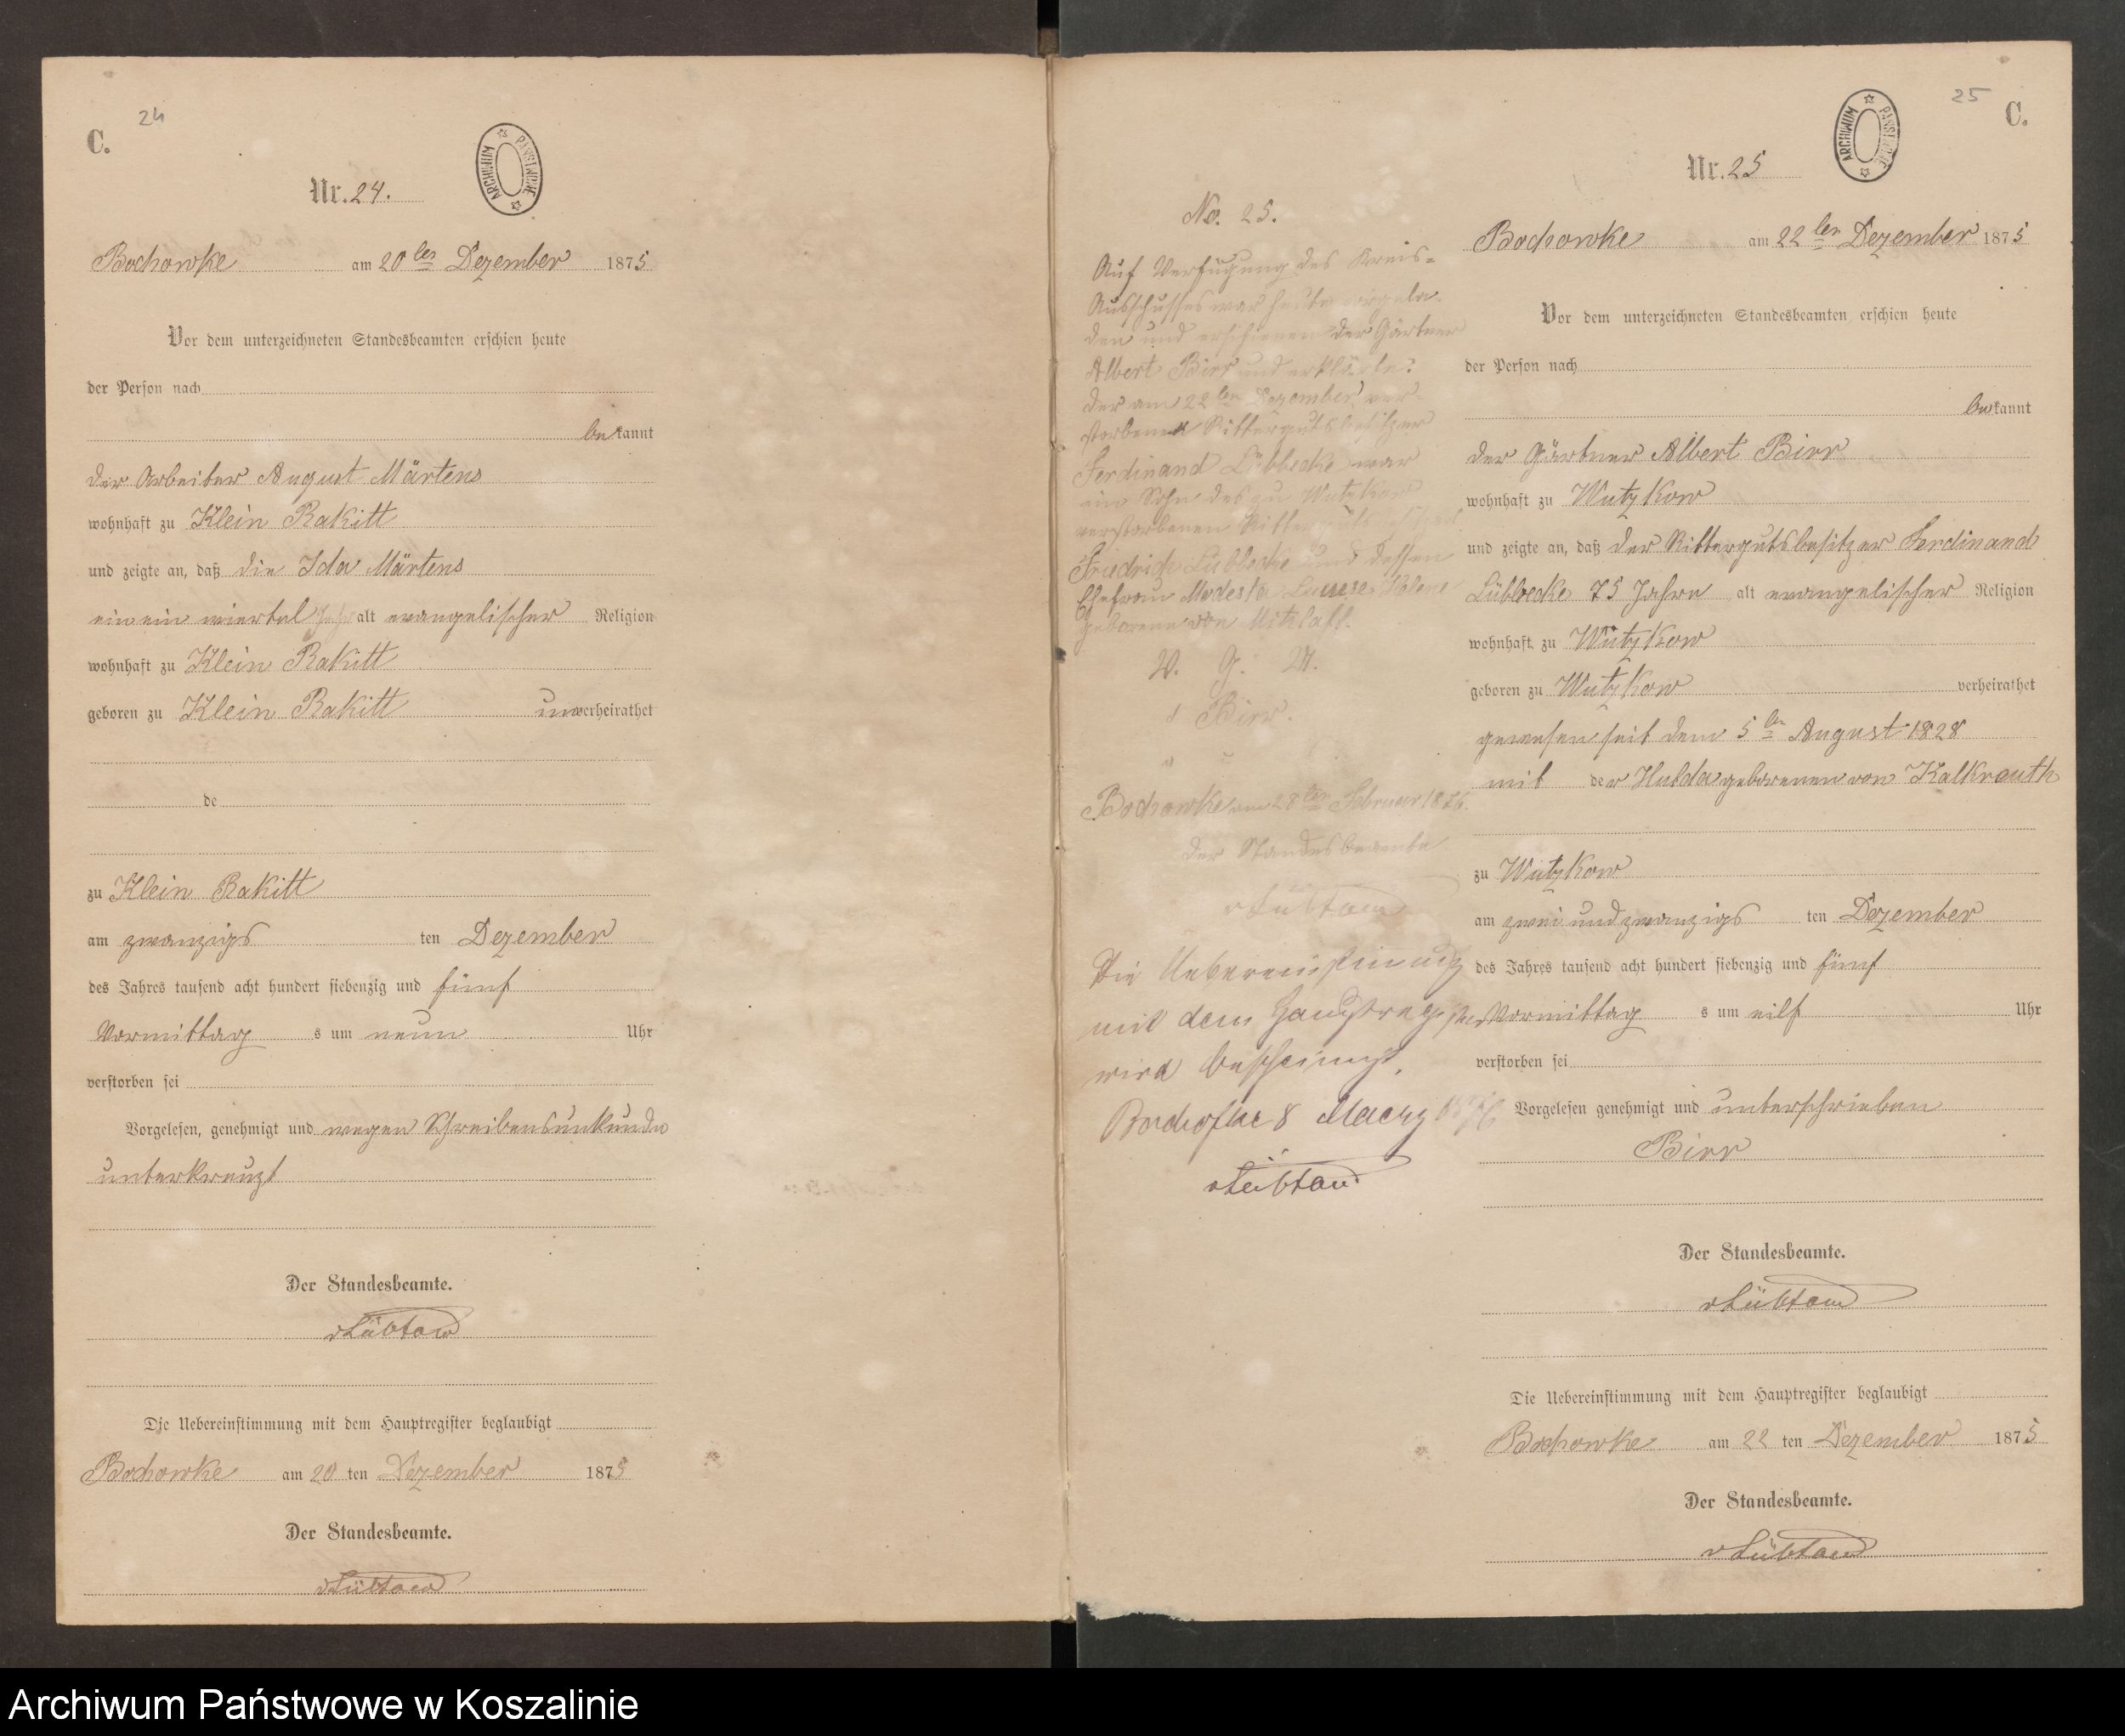 24
C.
ARCHIWUM PAŃSTWOWE
Nr. 24.
Bochowke am 20ten Dezember 1875
Vor dem unterzeichneten Standesbeamten erschien heute
der Person nach
bekannt
der Arbeiter August Märtens
wohnhaft zu Klein Rakitt
und zeigte an, daß die Ida Märtens
ein ein viertel Jahr alt evangelischer Religion
wohnhaft zu Klein Rakitt
geboren zu Klein Rakitt unverheirathet
de
zu Klein Rakitt
am zwanzigs ten Dezember
des Jahres tausend acht hundert siebenzig und fünf
Vormittag s um neun Uhr
verstorben sei
Vorgelesen, genehmigt und wegen Schreibensunkunde
unterkreuzt
Der Standesbeamte.
vLübtow
Die Uebereinstimmung mit dem Hauptregister beglaubigt
Bochowke am 20 ten Dezember 1875
Der Standesbeamte.
vLübtow
No. 25.
Auf Verfügung des Kreis=
Ausschusses war heute vorgela-
den und erschienen der Gärtner
Albert Birr und erklärte:
der am 22ten Dezember ver-
storbene Rittergutsbesitzer
Ferdinand Lübbecke war
ein Sohn des zu Wutzkow
verstorbenen Rittergutsbesitzer
Friedrich Lübbecke und dessen
Ehefrau Modesta Louise Helene
geborene von Mitzlaff.
V. G. U.
Birr.
Bochowke am 28ten Februar 1876.
Der Standesbeamte
vLübtow
Die Uebereinstimmung
mit dem Hauptregister
wird bescheinigt.
Bochofke 8 Maerz 1876
vLübtow
25
C.
ARCHIWUM PAŃSTWOWE
Nr. 25
Bochowke am 22ten Dezember 1875
Vor dem unterzeichneten Standesbeamten erschien heute
der Person nach
bekannt
der Gärtner Albert Birr
wohnhaft zu Wutzkow
und zeigte an, daß der Rittergutsbesitzer Ferdinand
Lübbecke 75 Jahre alt evangelischer Religion
wohnhaft zu Wutzkow
geboren zu Wutzkow verheirathet
gewesen seit dem 5ten August 1828
mit der Hulda geborenen von Kalkreuth
zu Wutzkow
am zwei und zwanzigs ten Dezember
des Jahres tausend acht hundert siebenzig und fünf
Vormittag s um eilf Uhr
verstorben sei
Vorgelesen genehmigt und unterschrieben
Birr
Der Standesbeamte.
vLübtow
Die Uebereinstimmung mit dem Hauptregister beglaubigt
Bochowke am 22 ten Dezember 1875
Der Standesbeamte.
vLübtow
Archiwum Państwowe w Koszalinie